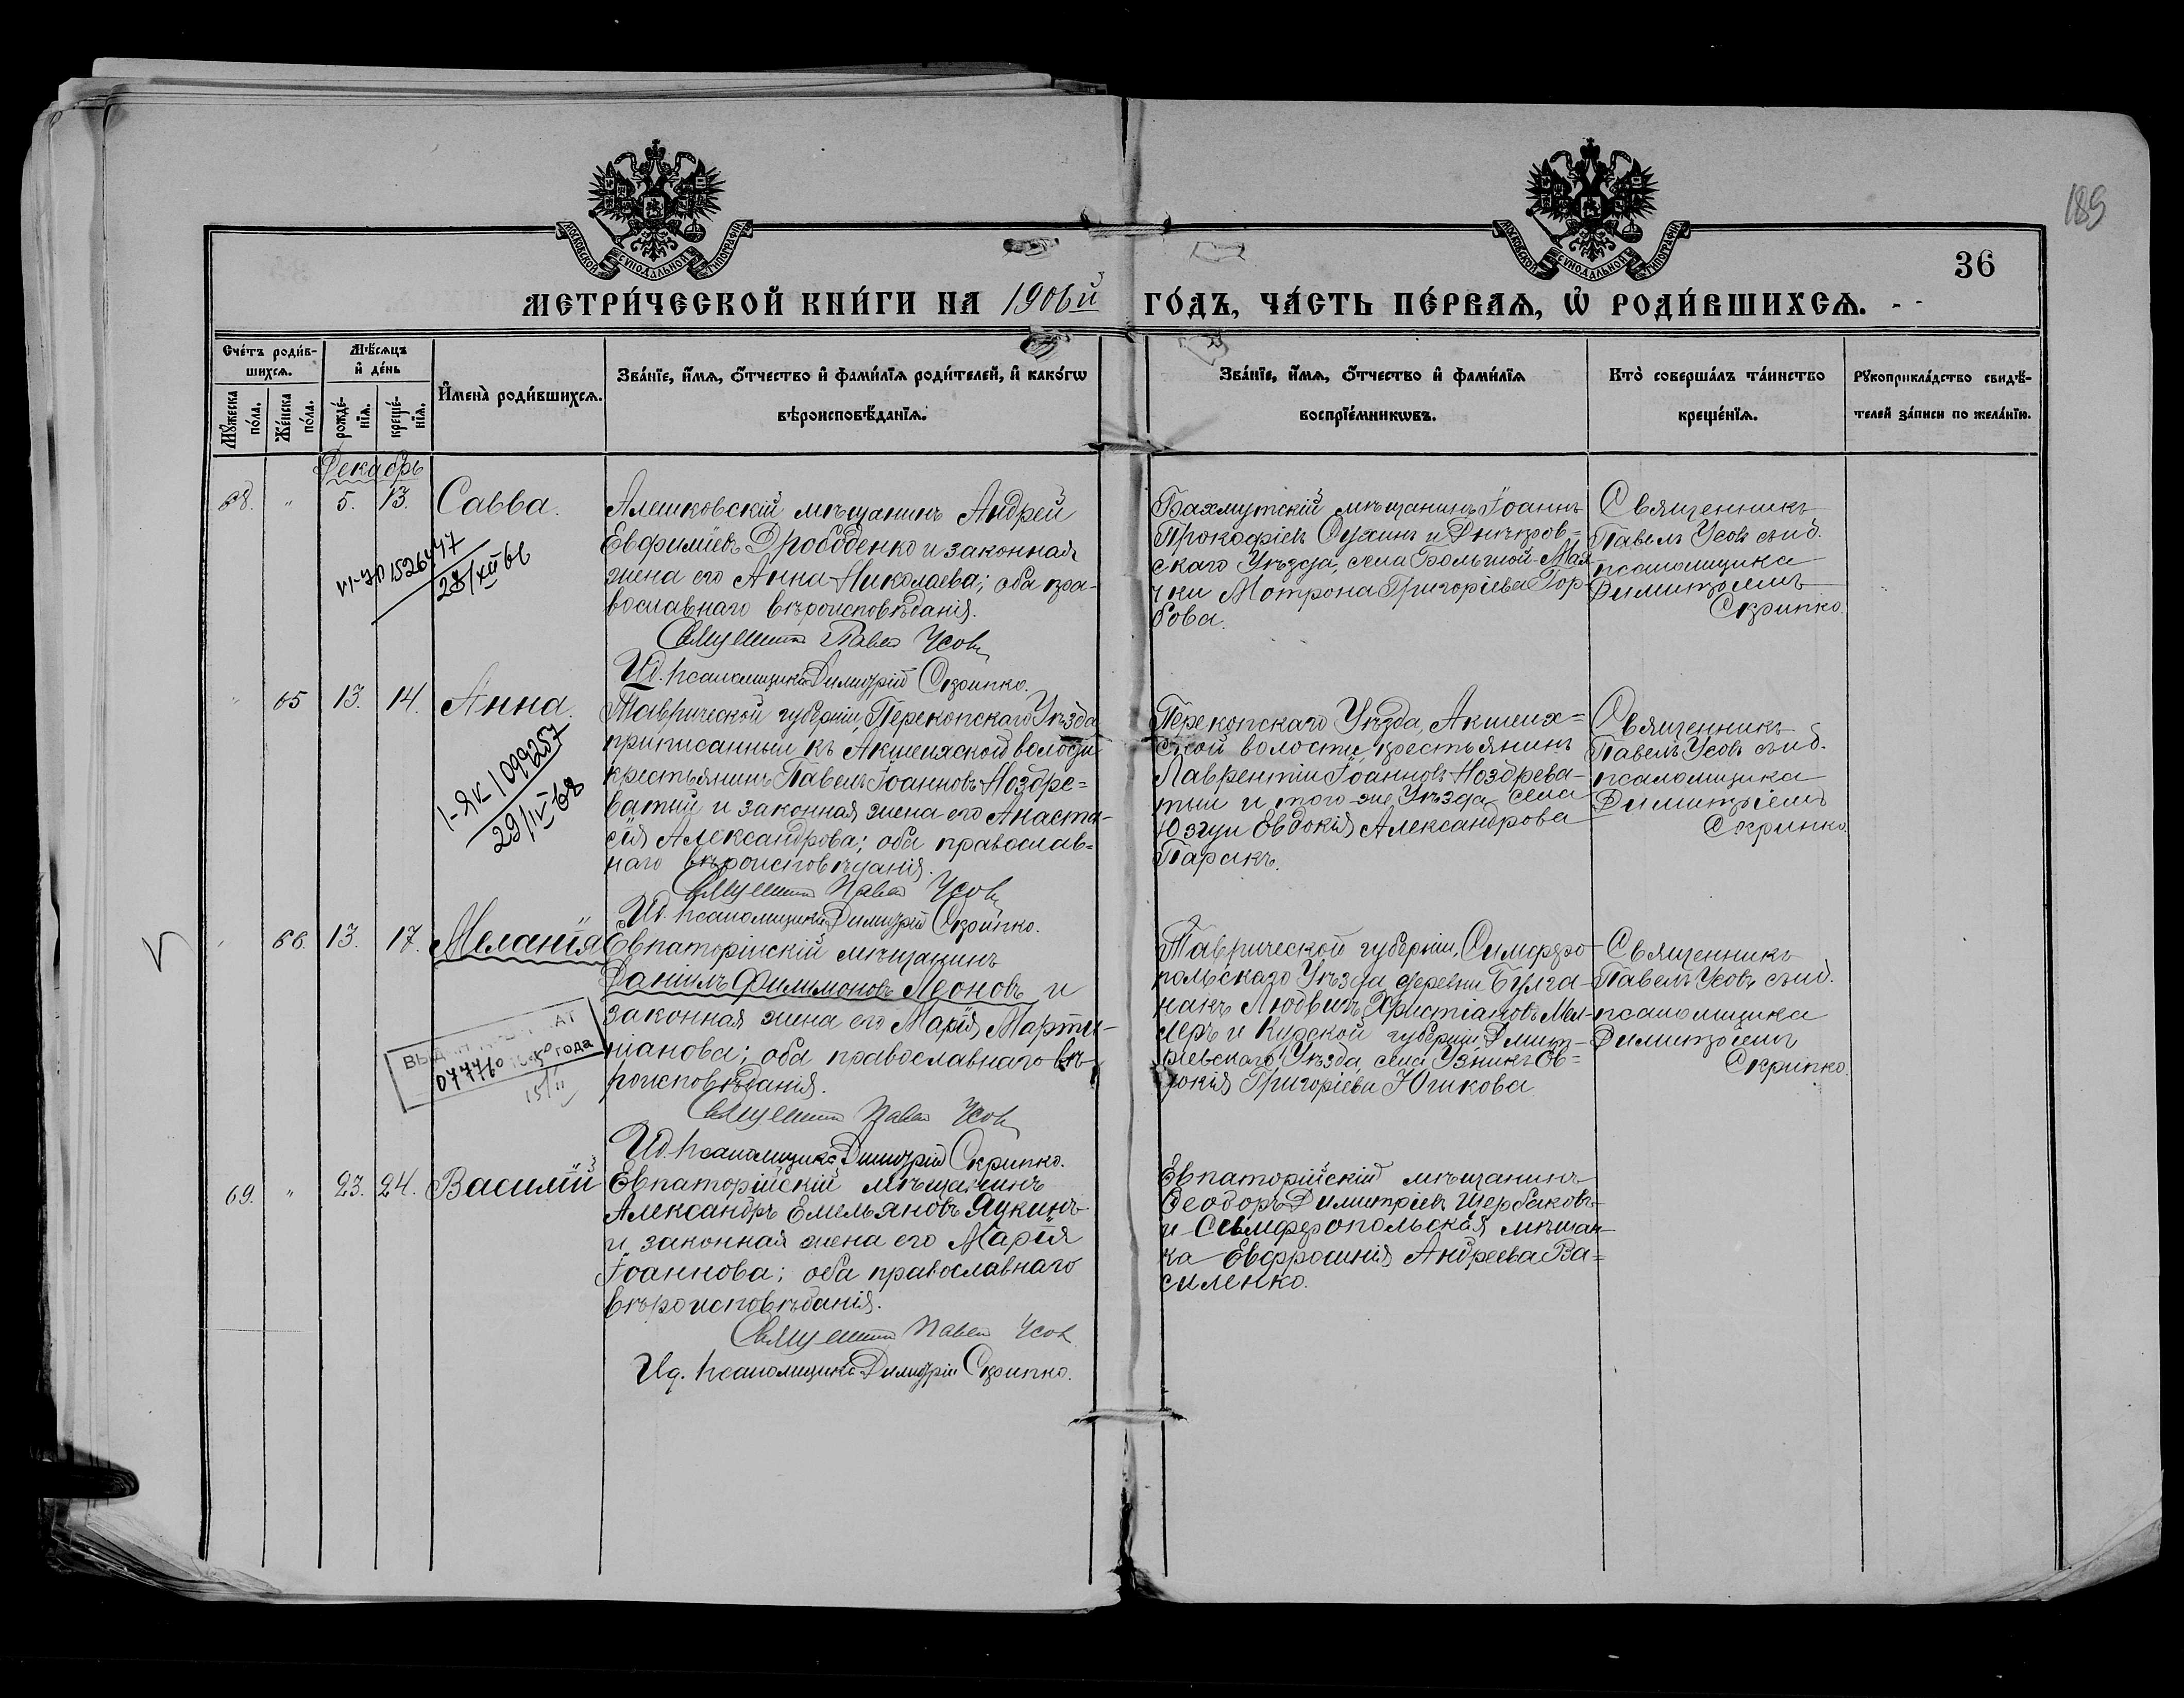 МОСКОВСКОЙ СѴНОДАЛЬНОЙ ТИПОГРАФІИ
МОСКОВСКОЙ СѴНОДАЛЬНОЙ ТИПОГРАФІИ
189
36
МЕТРИ́ЧЕСКОЙ КНИ́ГИ НА 1906й ГО́ДЪ, ЧА́СТЬ ПЕ́РВАЯ, Ѡ҆ РОДИ́ВШИХСЯ.
Сче́тъ роди́в-
шихся.
Мꙋ́жеска по́ла.
Же́нска по́ла.
Мѣ́сяцъ
и҆ де́нь
рожде́-
нїя.
креще́-
нїя.
И҆мена̀ роди́вшихся.
Зва́нїе, и҆́мя, ѻ҆́тчество и҆ фами́лїя роди́телей, и҆ како́гѡ
вѣроисповѣ́данїя.
Зва́нїе, и҆́мя, ѻ҆́тчество и҆ фами́лїя
воспрїе́мникѡвъ.
Кто̀ соверша́лъ та́инство
креще́нїя.
Рꙋкоприкла́дство свидѣ́-
телей за́писи по жела́нїю.
Декабрь
68. " 5. 13. Савва.
Алешковскій мѣщанинъ Андрей
Евфиміевъ Дрободенко и законная
жена его Анна Николаева; оба пра-
вославнаго вѣроисповѣданія.
Священникъ Павелъ Усовъ
Ид. псаломщика Димитрій Скрипко.
Бахмутскій мѣщанинъ Іоаннъ
Прокофіевъ Сухинъ и Днѣпров-
скаго Уѣзда, села Большой-Мая
чки Мотрона Григоріева Гор-
бова.
Священникъ
Павелъ Усовъ съ и.д.
псаломщика
Димитріемъ
Скрипко.
1526447
28/XII 66
" 65 13. 14. Анна.
Таврической губерніи, Перекопскаго Уѣзда
приписанный къ Акшеихской волости
крестьянинъ Павелъ Іоанновъ Ноздре-
ватый и законная жена его Анаста-
сія Александрова; оба православ-
наго вѣроисповѣданія.
Священникъ Павелъ Усовъ
Ид. псаломщика Димитрій Скрипко.
Перекопскаго Уѣзда, Акшеих-
ской волости, крестьянинъ
Лаврентій Іоанновъ Ноздрева-
тый и того-же Уѣзда села
Юзгуи Евдокія Александрова
Паракъ.
Священникъ
Павелъ Усовъ съ и.д.
псаломщика
Димитріемъ
Скрипко.
I-ЯК 1099257
29/IV 68
66. 13. 17. Меланія
Евпаторійскій мѣщанинъ
Даніилъ Филимоновъ Леоновъ и
законная жена его Марія Марти-
шанова; оба православнаго вѣ-
роисповѣданія.
Священникъ Павелъ Усовъ
Ид. псаломщика Димитрій Скрипко.
Таврической губерніи, Симферо-
польскаго Уѣзда деревни Булга-
накъ Людвигъ Христіановъ Мил-
леръ и Курской губерніи, Дмит-
ріевскаго Уѣзда, села Узникъ Ев-
докія Григоріева Юшкова
Священникъ
Павелъ Усовъ съ и.д.
псаломщика
Димитріемъ
Скрипко.
077760 года
15/II
69. " 23. 24. Василій
Евпаторійскій мѣщанинъ
Александръ Емельяновъ Яцкинъ
и законная жена его Марія
Іоаннова; оба православнаго
вѣроисповѣданія.
Священникъ Павелъ Усовъ
Ид. псаломщика Димитрій Скрипко.
Евпаторійскій мѣщанинъ
Ѳеодоръ Димитріевъ Щербаковъ
и Симферопольская мѣщан-
ка Евфросинія Андреева Ва-
силенко.